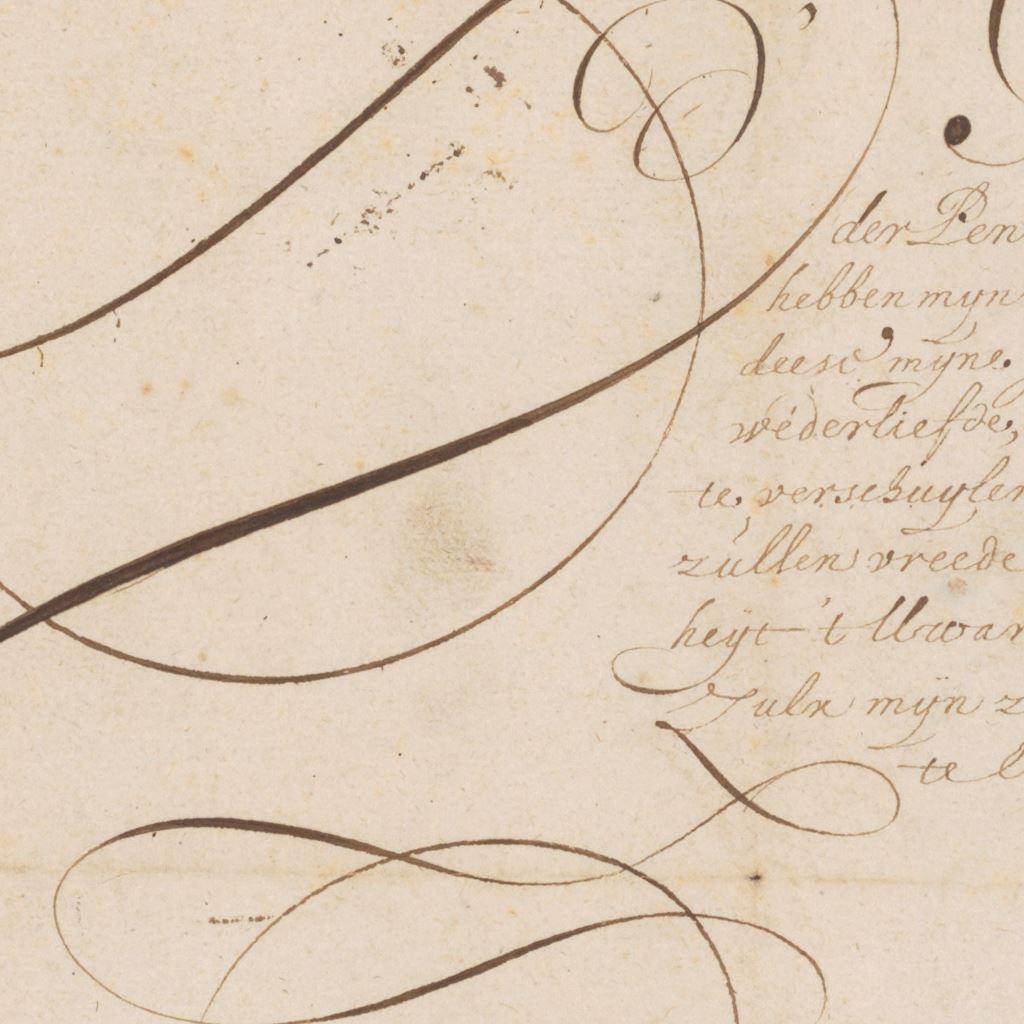 der Pen
hebben myn
deese mijne.
wederliefde,
te, verschuylen
zullen vreede
heyt 't Uwar
Zulx mijn z
te